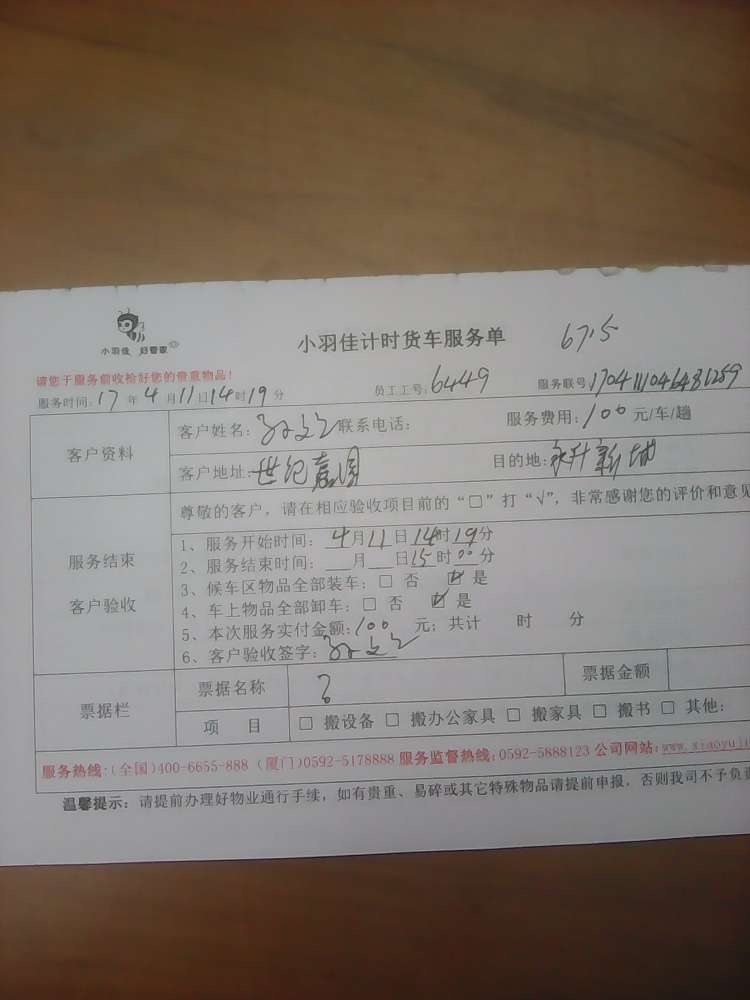 小羽佳 好管家
小羽佳计时货车服务单 67.5
请您于服务前收拾好您的贵重物品!
服务时间: 17 年 4 月 11 日 14 时 19 分 员工工号: 6449 服务联号
客户资料
客户姓名: 联系电话: 服务费用: 100 元/车/趟
客户地址: 世纪嘉园 目的地: 永升新城
服务结束
客户验收
尊敬的客户,请在相应验收项目前的“□”打“√”,非常感谢您的评价和意见
1、服务开始时间: 4 月 11 日 14 时 19 分
2、服务结束时间: 月 日 15 时 00 分
3、候车区物品全部装车: □ 否 ☑ 是
4、车上物品全部卸车: □ 否 ☑ 是
5、本次服务实付金额: 100 元; 共计 时 分
6、客户验收签字:
票据栏
票据名称 票据金额
项 目 □ 搬设备 □ 搬办公家具 □ 搬家具 □ 搬书 □ 其他:
服务热线:(全国)400-6655-888 (厦门)0592-5178888 服务监督热线:0592-5888123 公司网站:www.xiaoyuj
温馨提示: 请提前办理好物业通行手续,如有贵重、易碎或其它特殊物品请提前申报,否则我司不予负责